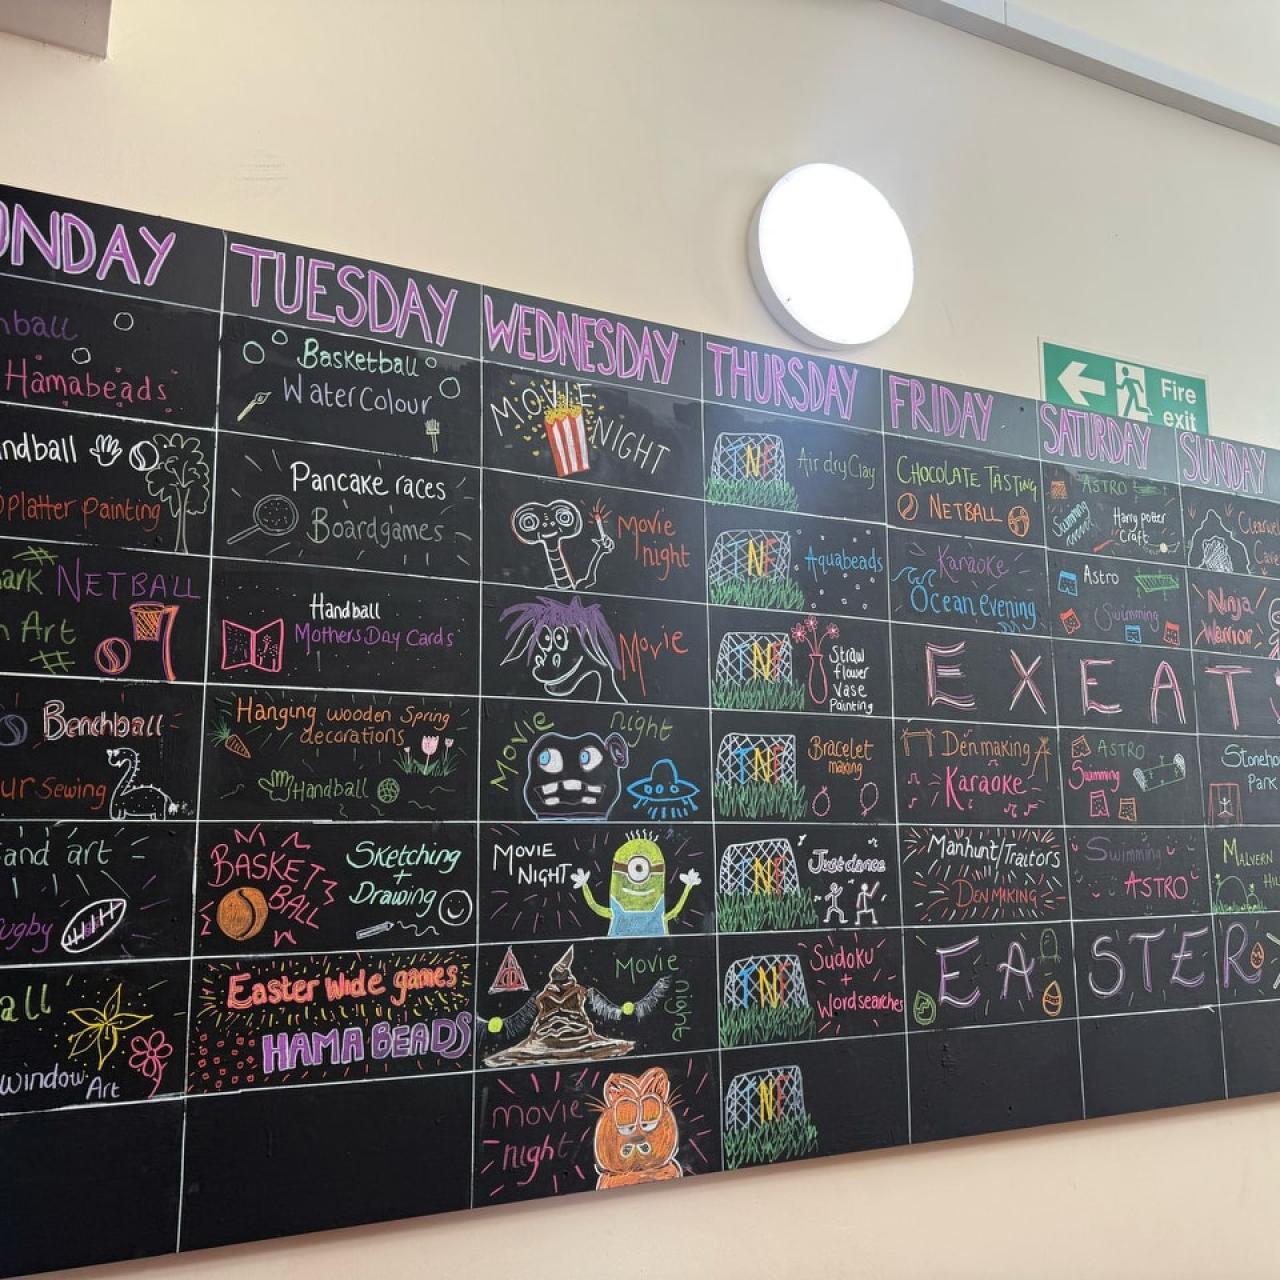 TUESDAY
WEDNESDAY
THURSDAY
FRIDAY
SATURDAY
SUNDAY
Fire
exit
Hamabeads
Basketball
WaterColour
MOVIE
NIGHT
TNF
Air dry Clay
CHOCOLATE TASTING
NETBALL
ASTRO
Swimming
Harry Potter
Craft
Splatter painting
Pancake races
Boardgames
Movie
night
TNF
Aquabeads
Karaoke
Ocean evening
Astro
Swimming
Ninja
Warrior
NETBALL
Art
Handball
Mothers Day Cards
Movie
TNF
Straw
flower
Vase
Painting
EXEAT
Benchball
Sewing
Hanging wooden Spring
decorations
Handball
Movie night
TNF
Bracelet
making
Den making
Karaoke
ASTRO
Swimming
Park
art
BASKET
BALL
Sketching
+
Drawing
MOVIE
NIGHT
TNF
Just dance
Manhunt/Traitors
DEN MIKING
Swimming
ASTRO
MALVERN
window Art
Easter Wide games
HAMA BEADS
Movie
night
TNF
Sudoku
+
Wordsearches
EASTER
movie
night
TNF